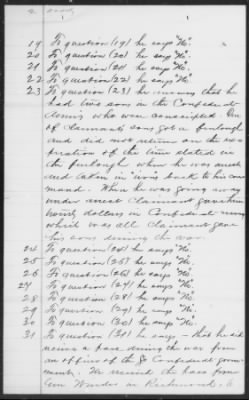 2
19 To question (19) he says "No".
20 To question (20) he says "No".
21 To question (21) he says "No".
22 To question (22) he says "No".
23 To question (23) he means that he
had two sons in the Confederate
Army who were conscripted. One
of Claimants sons got a furlough
and did not return on the ex-
piration of the time stated in
the furlough when he was arrest-
ed and taken in irons back to his com
mand. When he was going away
under arrest Claimant gave him
twenty dollars in Confederate money
which was all Claimant gave
his sons during the war.
24 To question (24) he says "No".
25 To question (25) he says "No".
26 To question (26) he says "No".
27 To question (27) he says "No".
28 To question (28) he says "No".
29 To question (29) he says "No".
30 To question (30) he says "No".
31 To question (31) he says - that he did
receive a pass during the war from
an officer of the Confederate govern-
ment. He received the pass from
Gen Winder in Richmond.